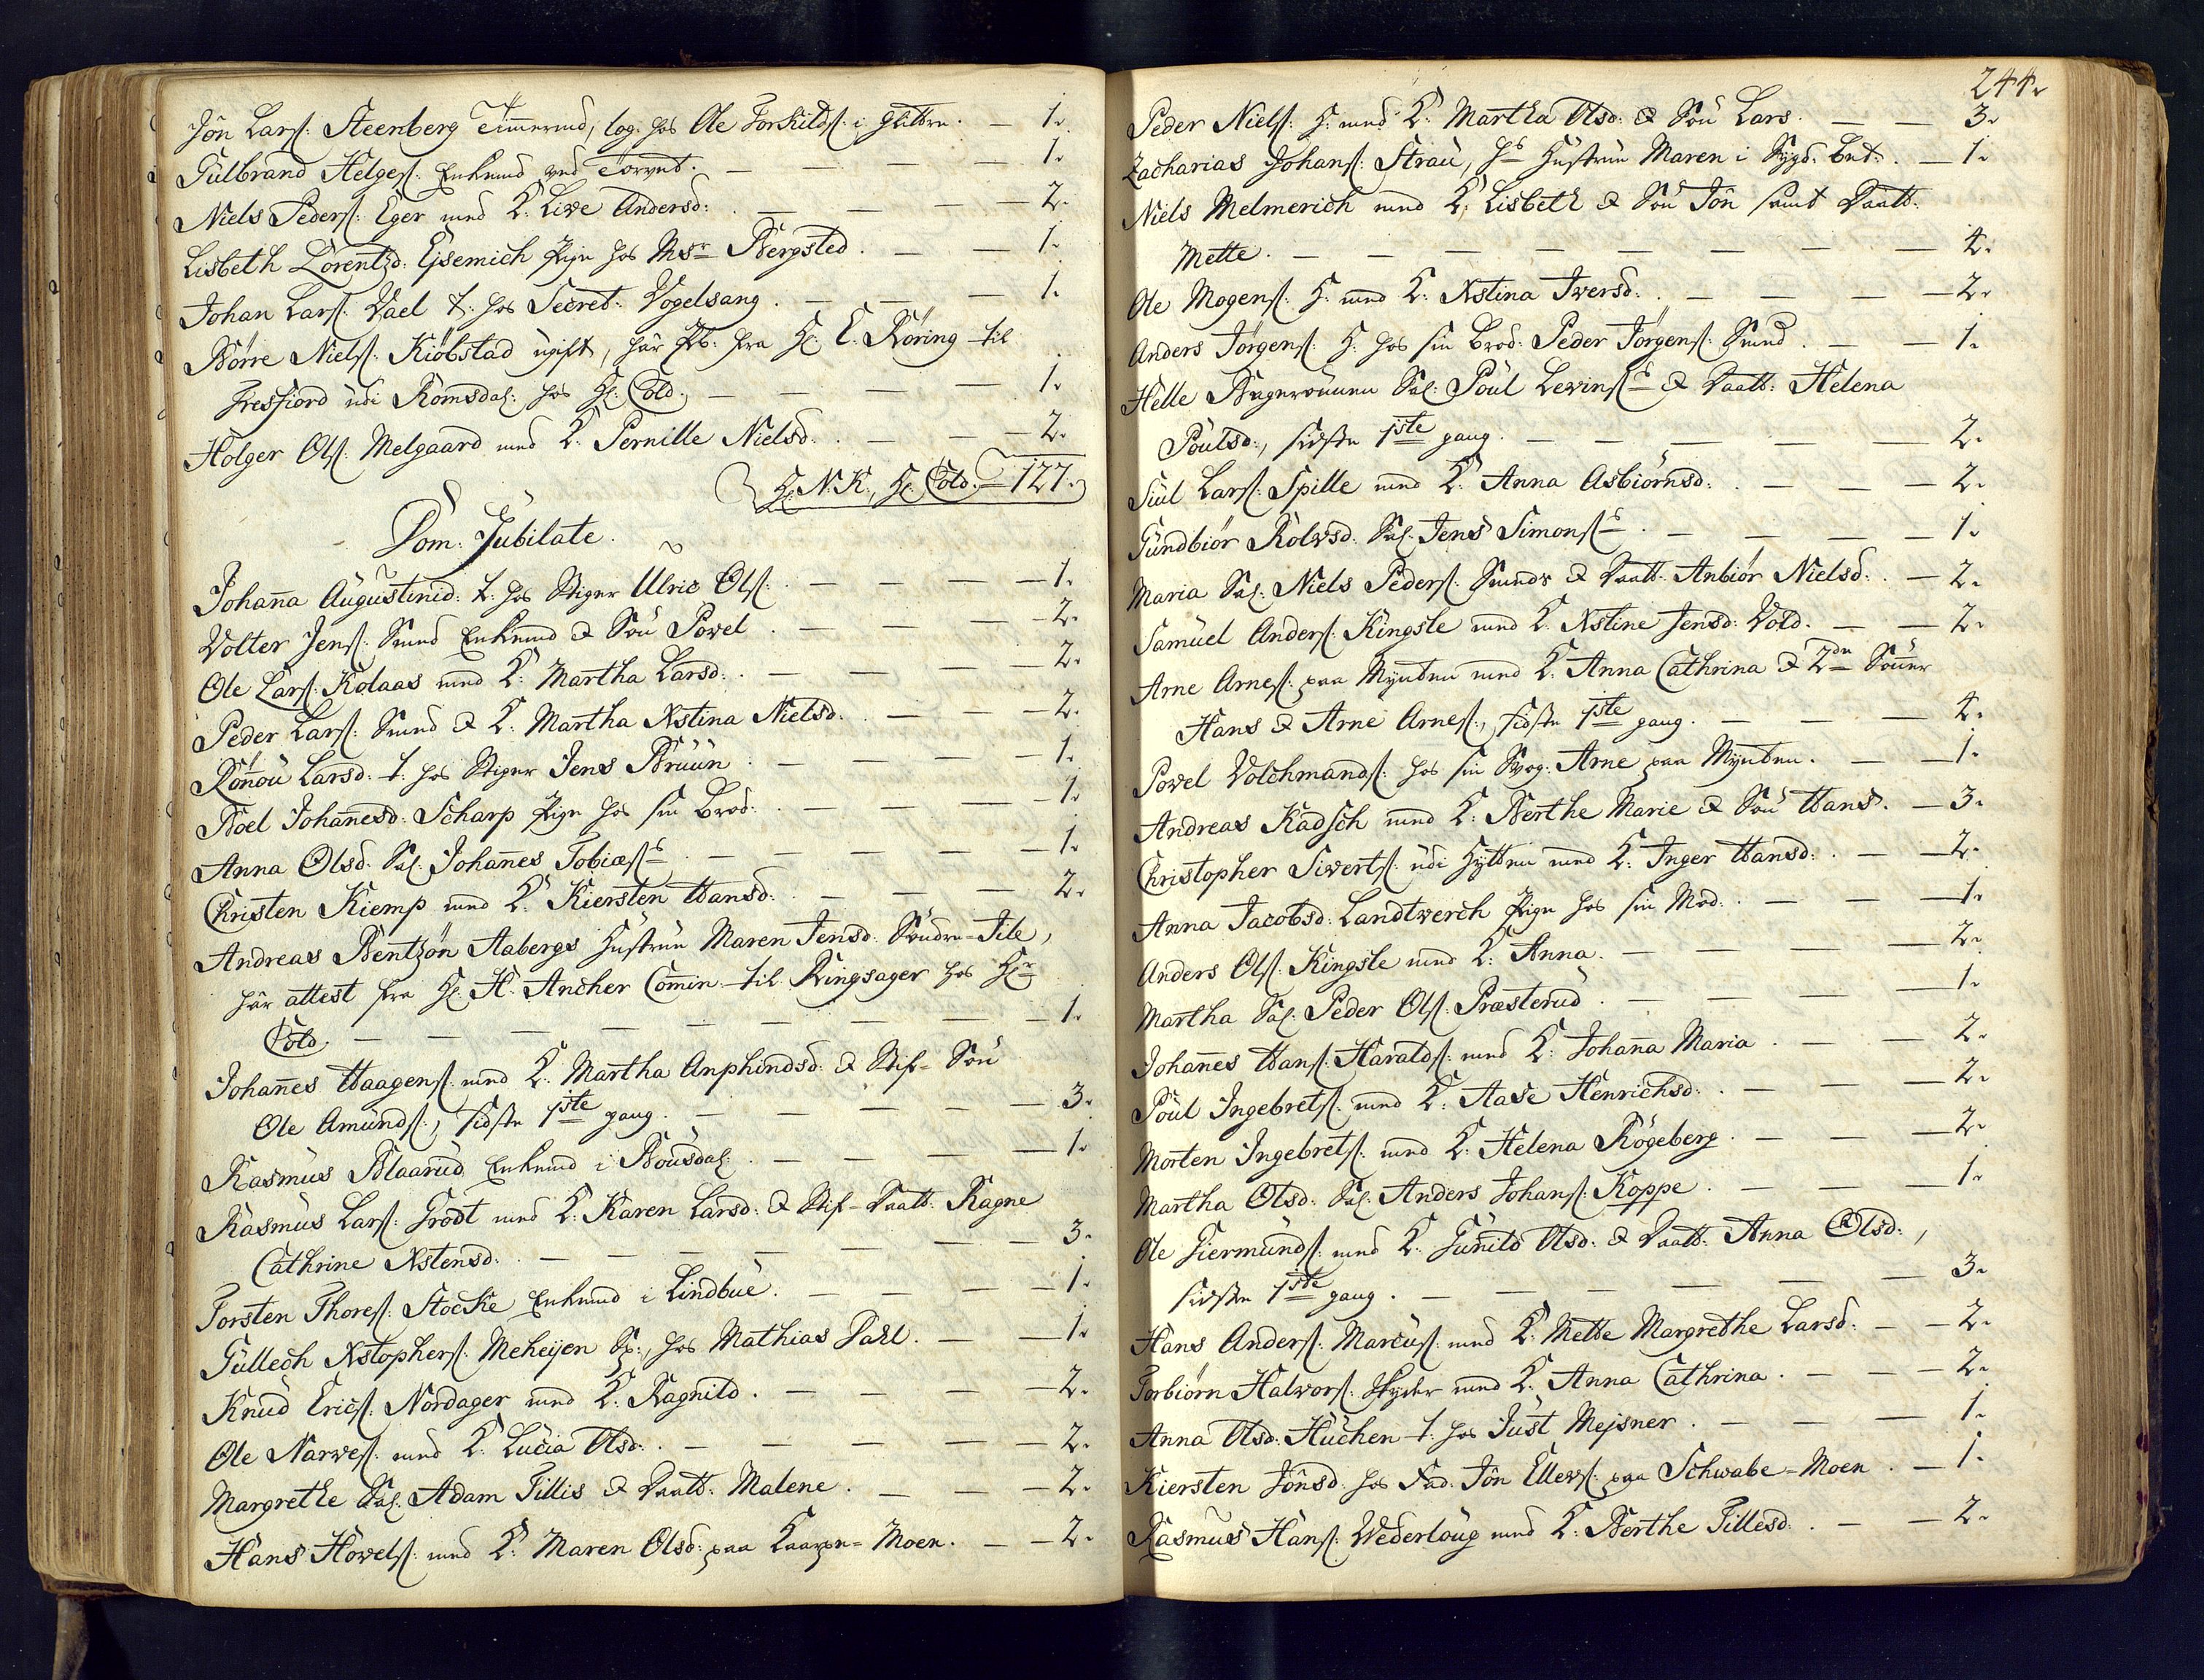 Jŏn Lars: Steenberg Timmermd, log: hos Ole Torkilds: i Hütten. — 1.
Gulbrand Helges: Enkemd ved Torvet. — — — 1.
Niels Peders: Eger med K: Live Andersd: — — — 2.
Lisbeth Lorentzd: Ejsemich Pige hos Msr Bergsted. — — 1.
Johan Lars: Vael t: hos Secret: Vogelsang. — — — 1.
Börre Niels: Kiöbstad ugift, har Pb: fra Hr: C: Röring til
Fresfiord udi Romsdal: hos Hr: Cold. — — — 1.
Holger Ols: Melgaard med K: Pernille Nielsd: — — 2.
Hr: N.K., Hr: Cold. = 127.
Dom: Jubilate.
Johana Augustinid: t: hos Stiger Ulric Ols: — — — 1.
Volter Jens: Smed Enkemd & Sön Povel. — — — 2.
Ole Lars: Kolaas med K: Martha Larsd: — — — 2.
Peder Lars: Smed & K: Martha Xstina Nielsd: — — 2.
Rönnou Larsd: t: hos Stiger Jens Bruun. — — — 1.
Boel Johanesd: Scharp Pige hos sin Brod: — — — 1.
Anna Olsd: Sal: Johanes Tobiæs: — — — 1.
Christen Kiemp med K: Kiersten Hansd: — — — 2.
Andreas Bentzön Aabergs Hustrue Maren Jensd: Söndre-Tile,
har attest fra Hr: H: Ancher Comin: til Ringsager hos Hr:
Cold. — — — — — — 1.
Johanes Haagens: med K: Martha Anphindsd: & Stif-Sön
Ole Amunds:, sidste 1ste gang. — — — 3.
Rasmus Blaarud Enkemd i Bousdal: — — — 1.
Rasmus Lars: Grodt med K: Karen Larsd: & Stif-Daatt: Ragne
Cathrine Xstensd: — — — — 3.
Torsten Thores: Stocke Enkemd i Lindbue. — — — 1.
Gullech Xstophers: Meheijen Sp:, hos Mathias Pahl. — — 1.
Knud Erics: Nordager med K: Ragnild. — — — 2.
Ole Narves: med K: Lucia Olsd: — — — — 2.
Margrethe Sal: Adam Tillis & Daatt: Malene. — — — 2.
Hans Hovels: med K: Maren Olsd: paa Moen. — — 2.
244.
Peder Niels: H: med K: Martha Olsd: & Sön Lars. — — 3.
Zacharias Johans: Strau, Hs Hustrue Maren i Sygd: bet: — 1.
Niels Melmerich med K: Lisbeth & Sön Jŏn samt Daatt:
Mette. — — — — — 4.
Ole Mogens: H: med K: Xstina Iversd: — — — 2.
Anders Jörgens: H: hos sin Brod: Peder Jörgens: Smed. — — 1.
Helle Sal: Poul Levins: & Daatt: Helena
Poulsd:, sidste 1ste gang. — — — — 2.
Siul Lars: Spille med K: Anna Asbiörnsd: — — — 2.
Gundbiör Rolvsd: Sal: Jens Simons: — — — 1.
Maria Sal: Niels Peders: Smeds & Daatt: Anbiör Nielsd: — 2.
Samuel Anders: Kingsle med K: Xstine Jensd: Vold. — — 2.
Arne Arnes: paa Mynten med K: Anna Cathrina & 2de Sönner
Hans & Arne Arnes:, sidste 1ste gang. — — — 4.
Povel Volchmands: hos sin Svog: Arne paa Mynten. — — 1.
Andreas Kadsch med K: Berthe Marie & Sön Hans. — 3.
Christopher Siverts: udi Hytten med K: Inger Hansd: — — 2.
Anna Jacobsd: Landtverch Pige hos sin Mod: — — — 1.
Anders Ols: Kingsle med K: Anna. — — — — 2.
Martha Sal: Peder Ols: Præsterud. — — — — 1.
Johanes Hans: Haralds: med K: Johana Maria. — — 2.
Poul Ingebrets: med K: Aase Henrichsd: — — — 2.
Morten Ingebrets: med K: Helena Rögeberg. — — — 2.
Martha Olsd: Sal: Anders Johans: Koppe. — — — 1.
Ole Giermunds: med K: Gunild Olsd: & Daatt: Anna Olsd:,
sidste 1ste gang. — — — — 3.
Hans Anders: Marcus: med K: Mette Margrethe Larsd: — — 2.
Torbiörn Halvors: Skyder med K: Anna Cathrina. — — 2.
Anna Olsd: Huchen t: hos Just Mejsner. — — — 1.
Kiersten Jŏnsd: hos Fad: Jŏn Ellevs: paa Schwabe-Moen. — 1.
Rasmus Hans: Wederloug med K: Berthe Tillesd: — — 2.